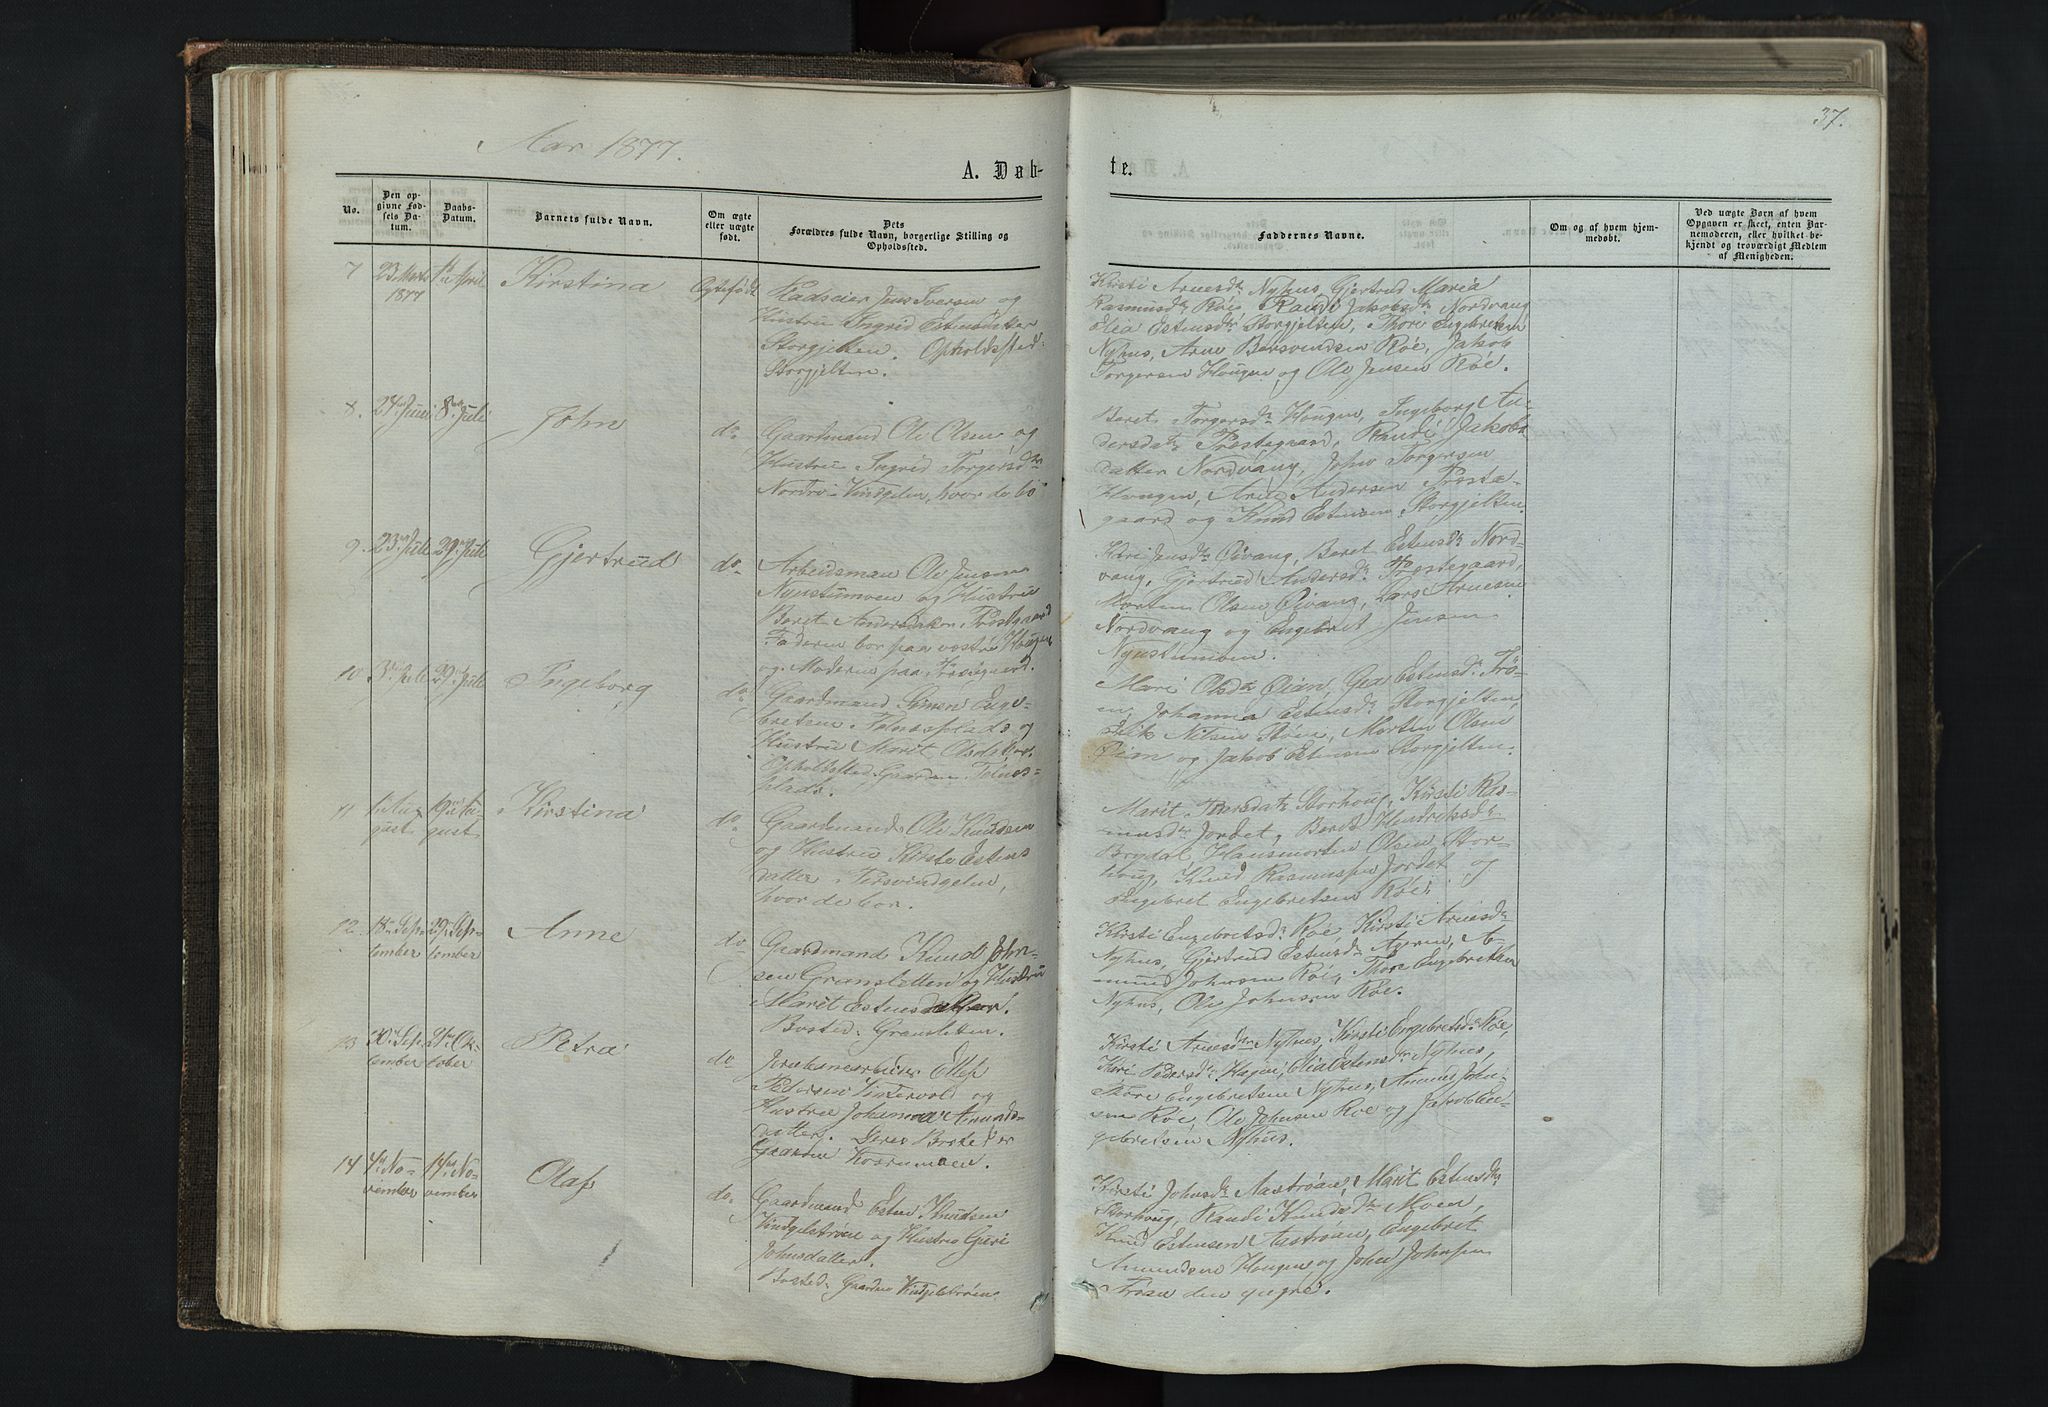 37.
Aar 1877.
A. Døb-
te.
No.
Den op-
givne Fød-
sels Da-
tum.
Daabs-
Datum.
Barnets fulde Navn.
Om ægte
eller uægte
født.
Dets
Forældres fulde Navn, borgerlige Stilling og
Opholdssted.
Faddernes Navne.
Om og af hvem hjem-
medøbt.
Ved uægte Børn af hvem
Opgaven er skeet, enten Bar-
nemoderen, eller hvilket be-
kjendt og troværdigt Medlem
af Menigheden.
7 23 Marts 1877
April
Kirstina
Ægtefødt
Pladseier Jens Iversen og
Hustru Ingrid Estensdatter
Storgjelten. Opholdssted:
Storgjelten.
Kirsti Arnesdr Nyhus, Gjertrud Maria
Rasmusdr Røe, Randi Jakobsdr Nordvang
Elea Estensdr Storgjelten, Thore Engebretsen
Nyhus, Arne Bersvendsen Røe, Jakob
Torgersen Hougen og Ole Jensen Røe.
8. 24 Juni
8de Juli
John
do
Gaardmand Ole Olsen og
Hustru Ingrid Torgersdr
Nordre Vindgelen, hvor de bo
Beret Torgersdr Hougen, Ingeborg An-
dersdr Præstegaard, Randi Jakobs
datter Nordvang, John Torgersen
Hougen, Arne Andersen Præste-
gaard og Knud Estensen Storgjelten.
9. 23 Juli
29 Juli
Gjertrud
do
Arbeidsman Ole Jensen
Nystumoen og Hustru
Beret Andersdatter Præstgaard
Faderen bor paa vestre Hougen
og Moderen paa Præstgaard.
Kari Jensdr Øivang, Beret Estensdr Nord-
vang, Gjertrud Andersdr Præstegaard,
Morten Olsen Øivang, Lars Arnesen
Nordvang og Engebret Jensen
Nystumoen.
10 3 Juli
29 Juli
Ingeborg
do
Gaardmand Simen Enge-
bretsen Telnesplads og
Hustru Marit Olsdatter.
Opholdssted Gaarden Telnes-
plads.
Mari Olsdr Øian, Gea Estensdr Trø-
en, Johanna Estensdr Storgjelten,
Erik Nilsen Støen, Morten Olsen
Øian og Jakob Estensen Storgjelten.
11 1 Au-
gust
19de Au-
gust
Kirstina
do
Gaardmand Ole Knudsen
og Hustru Kirsti Estens
datter Vindgelen,
hvor de bor.
Marit Storhoug, Kirsti Ras-
musdr Jordet, Beret Hendriksdr
Brydal, Hansmorten Olsen Stor-
houg, Knud Rasmussen Jordet og
Engebret Engebretsen Røe.
12 18 Sep-
tember
29 Sep-
tember
Anne
do
Gaardmand Knud John-
sen Gransletten og Hustru
Marit Estensdatter.
Bosted: Gransletten.
Kirsti Engebretsdr Røe, Kirsti Arnesdr
Nyhus, Gjertrud Estensdr Ageren, A-
mund Johnsen Røe, Thore Engebretsen
Nyhus, Ole Johnsen Røe.
13 30 Sep-
tember
21 Ok-
tober
Petra
do
Pedersen Vintervold og
Hustru Johanna Amunds-
datter. Deres Bosted er
Gaarden Koversmoen.
Kirsti Arnesdr Nyhus, Kirsti Engebretsdr Røe,
Kari Pedersdr Hagen, Elia Estensdr Nyhus,
Thore Engebretsen Nyhus, Amund John-
sen Røe, Ole Johnsen Roe og Jakob En-
gebretsen Nyhus.
14 4 No-
vember
14 No-
vember
Olaf
do
Gaardmand Esten Knudsen
Vindgelstrøen og Hustru Guri
Johnsdatter.
Bosted: Gaarden Vindgelstrøen
Kirsti Johnsdr Aastrøen, Marit Estensdr
Storhoug, Randi Knudsdr Moen,
Knud Estensen Aastrøen, Engebret
Amundsen Hougen og John Johnsen
Trøen den yngre.